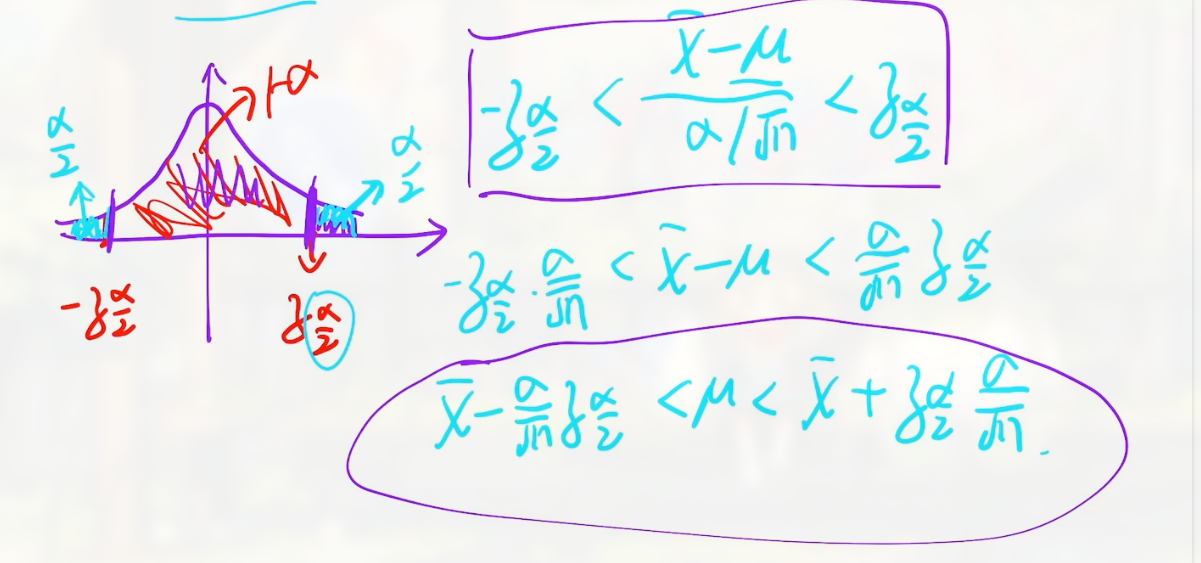 1-α
α/2
α/2
-z α/2
z α/2
-z α/2 < (x̄-μ)/(α/√n) < z α/2
-z α/2 · σ/√n < x̄-μ < σ/√n z α/2
x̄ - σ/√n z α/2 < μ < x̄ + z α/2 σ/√n.